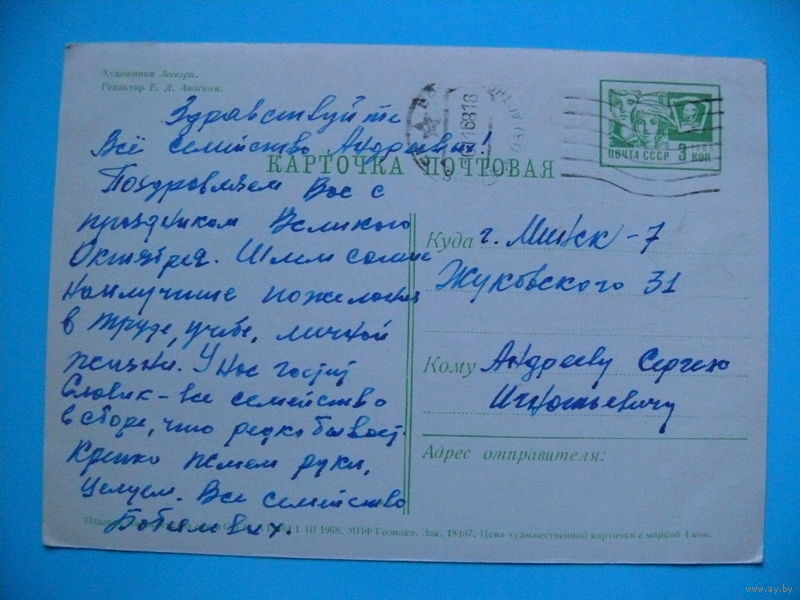 Художники Лесегри.
Редактор Е. Д. Аникин.
ПОЧТА СССР 3 КОП
1966
16818
КАРТОЧКА ПОЧТОВАЯ
Здравствуйте
Всё семейство Андреевых!
Поздравляем Вас с
праздником Великого
Октября. Шлем самые
наилучшие пожелания
в труде, учебе, личной
жизни. У нас гостит
Славик - все семейство
в сборе, что редко бывает.
Крепко жмем руки,
целуем. Все семейство
Бобилевич.
Куда г. Минск-7
Жуковского 31
Кому Андрееву Сергею
Игнатьевичу
Адрес отправителя:
1 III 1968. МПФ Гознака. Зак. 18407. Цена художественной карточки с маркой 4 коп.
www.ay.by